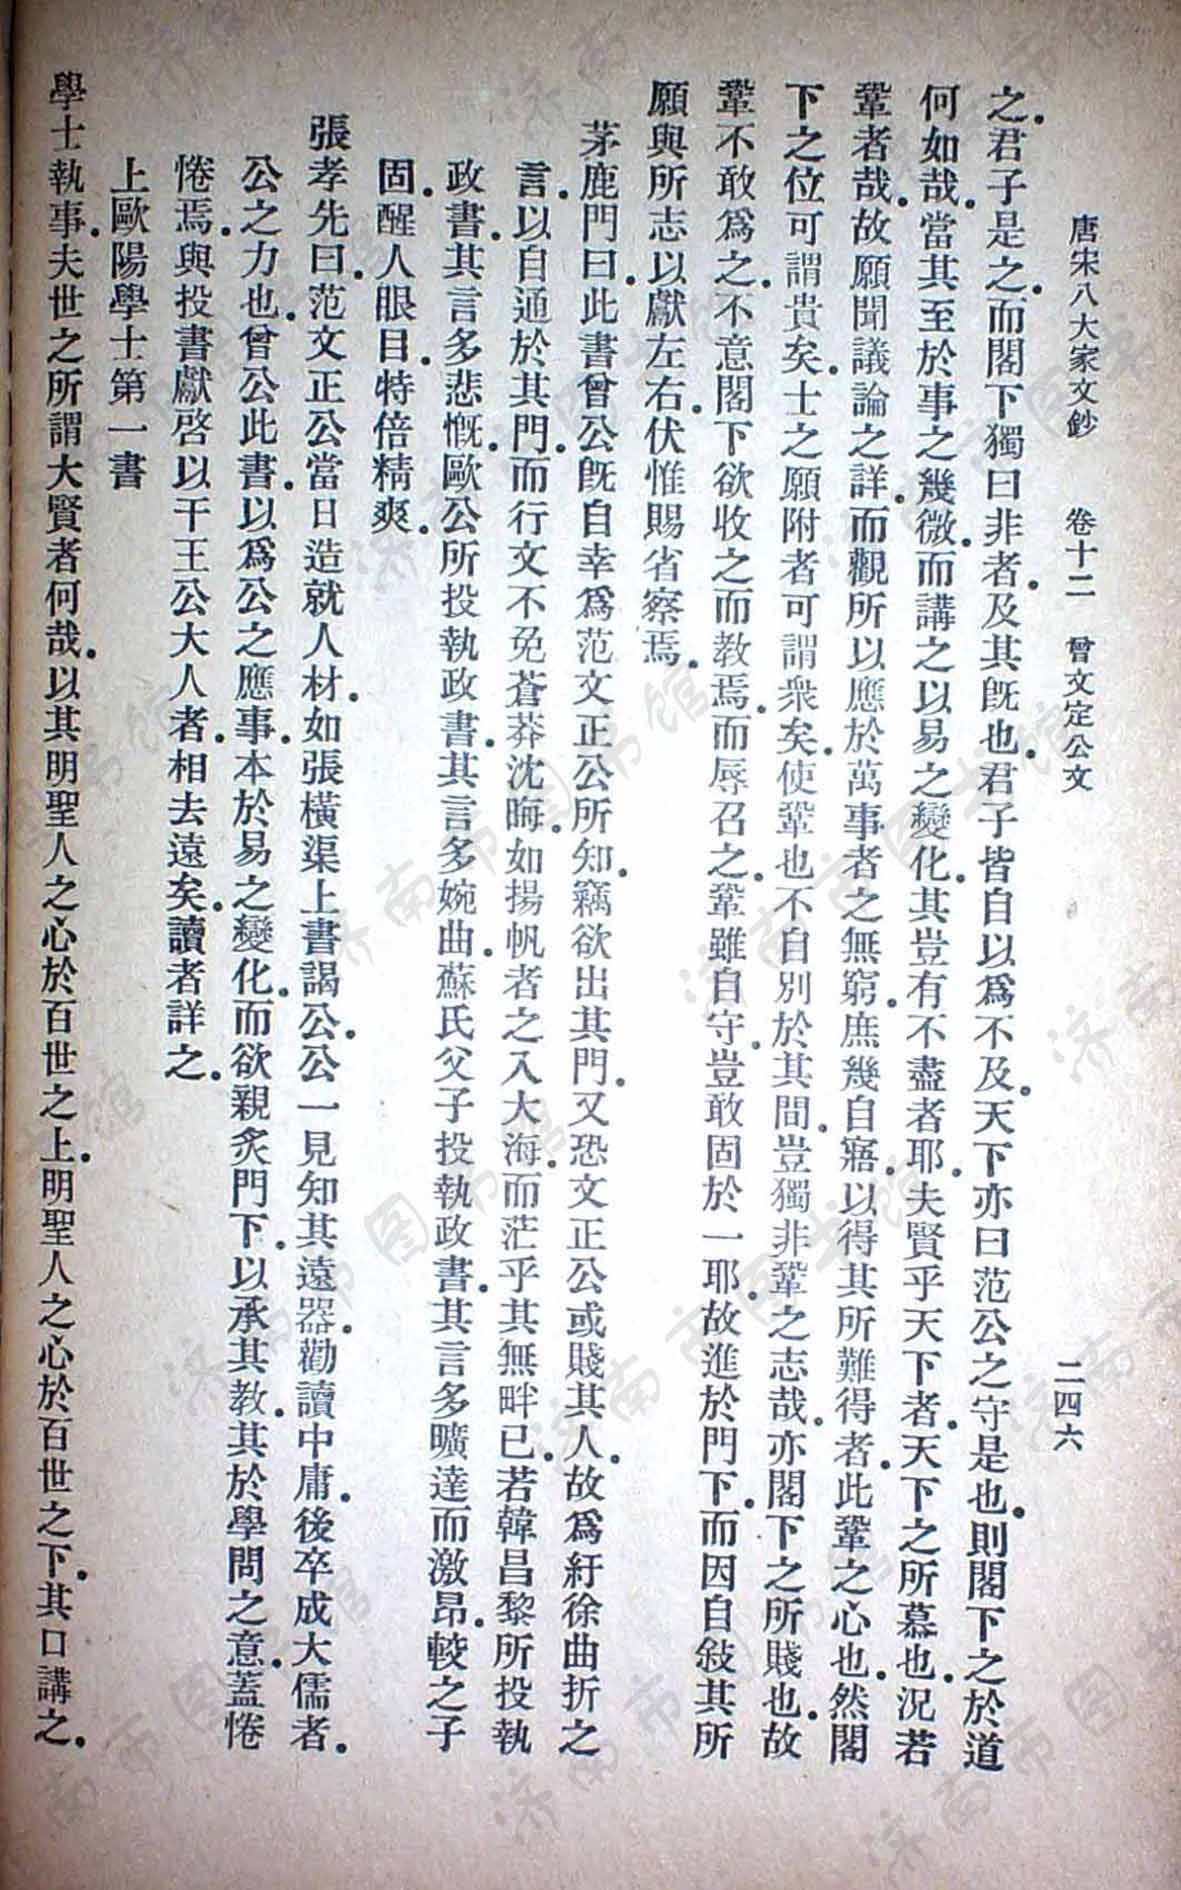 唐宋八大家文鈔　卷十二　曾文定公文　二四六
之．君子是之．而閣下獨曰非者．及其旣也．君子皆自以爲不及．天下亦曰范公之守是也．則閣下之於道
何如哉．當其至於事之幾微．而講之以易之變化．其豈有不盡者耶．夫賢乎天下者．天下之所慕也．況若
鞏者哉．故願聞議論之詳．而觀所以應於萬事者之無窮．庶幾自寤．以得其所難得者．此鞏之心也．然閣
下之位可謂貴矣．士之願附者可謂衆矣．使鞏也不自別於其間．豈獨非鞏之志哉．亦閣下之所賤也．故
鞏不敢爲之．不意閣下欲收之而教焉．而辱召之．鞏雖自守．豈敢固於一耶．故進於門下．而因自敍其所
願與所志以獻左右．伏惟賜省察焉．
茅鹿門曰．此書曾公旣自幸爲范文正公所知．竊欲出其門．又恐文正公或賤其人．故爲紆徐曲折之
言．以自通於其門．而行文不免蒼莽沈晦．如揚帆者之入大海．而茫乎其無畔已．若韓昌黎所投執
政書．其言多悲慨．歐公所投執政書．其言多婉曲．蘇氏父子投執政書．其言多曠達而激昂．較之子
固．醒人眼目．特倍精爽．
張孝先曰．范文正公當日造就人材．如張橫渠上書謁公．公一見知其遠器．勸讀中庸．後卒成大儒者．
公之力也．曾公此書．以爲公之應事．本於易之變化．而欲親炙門下．以承其教．其於學問之意．蓋惓
惓焉．與投書獻啓以干王公大人者．相去遠矣．讀者詳之．
上歐陽學士第一書
學士執事．夫世之所謂大賢者何哉．以其明聖人之心於百世之上．明聖人之心於百世之下．其口講之．
济南市图书馆